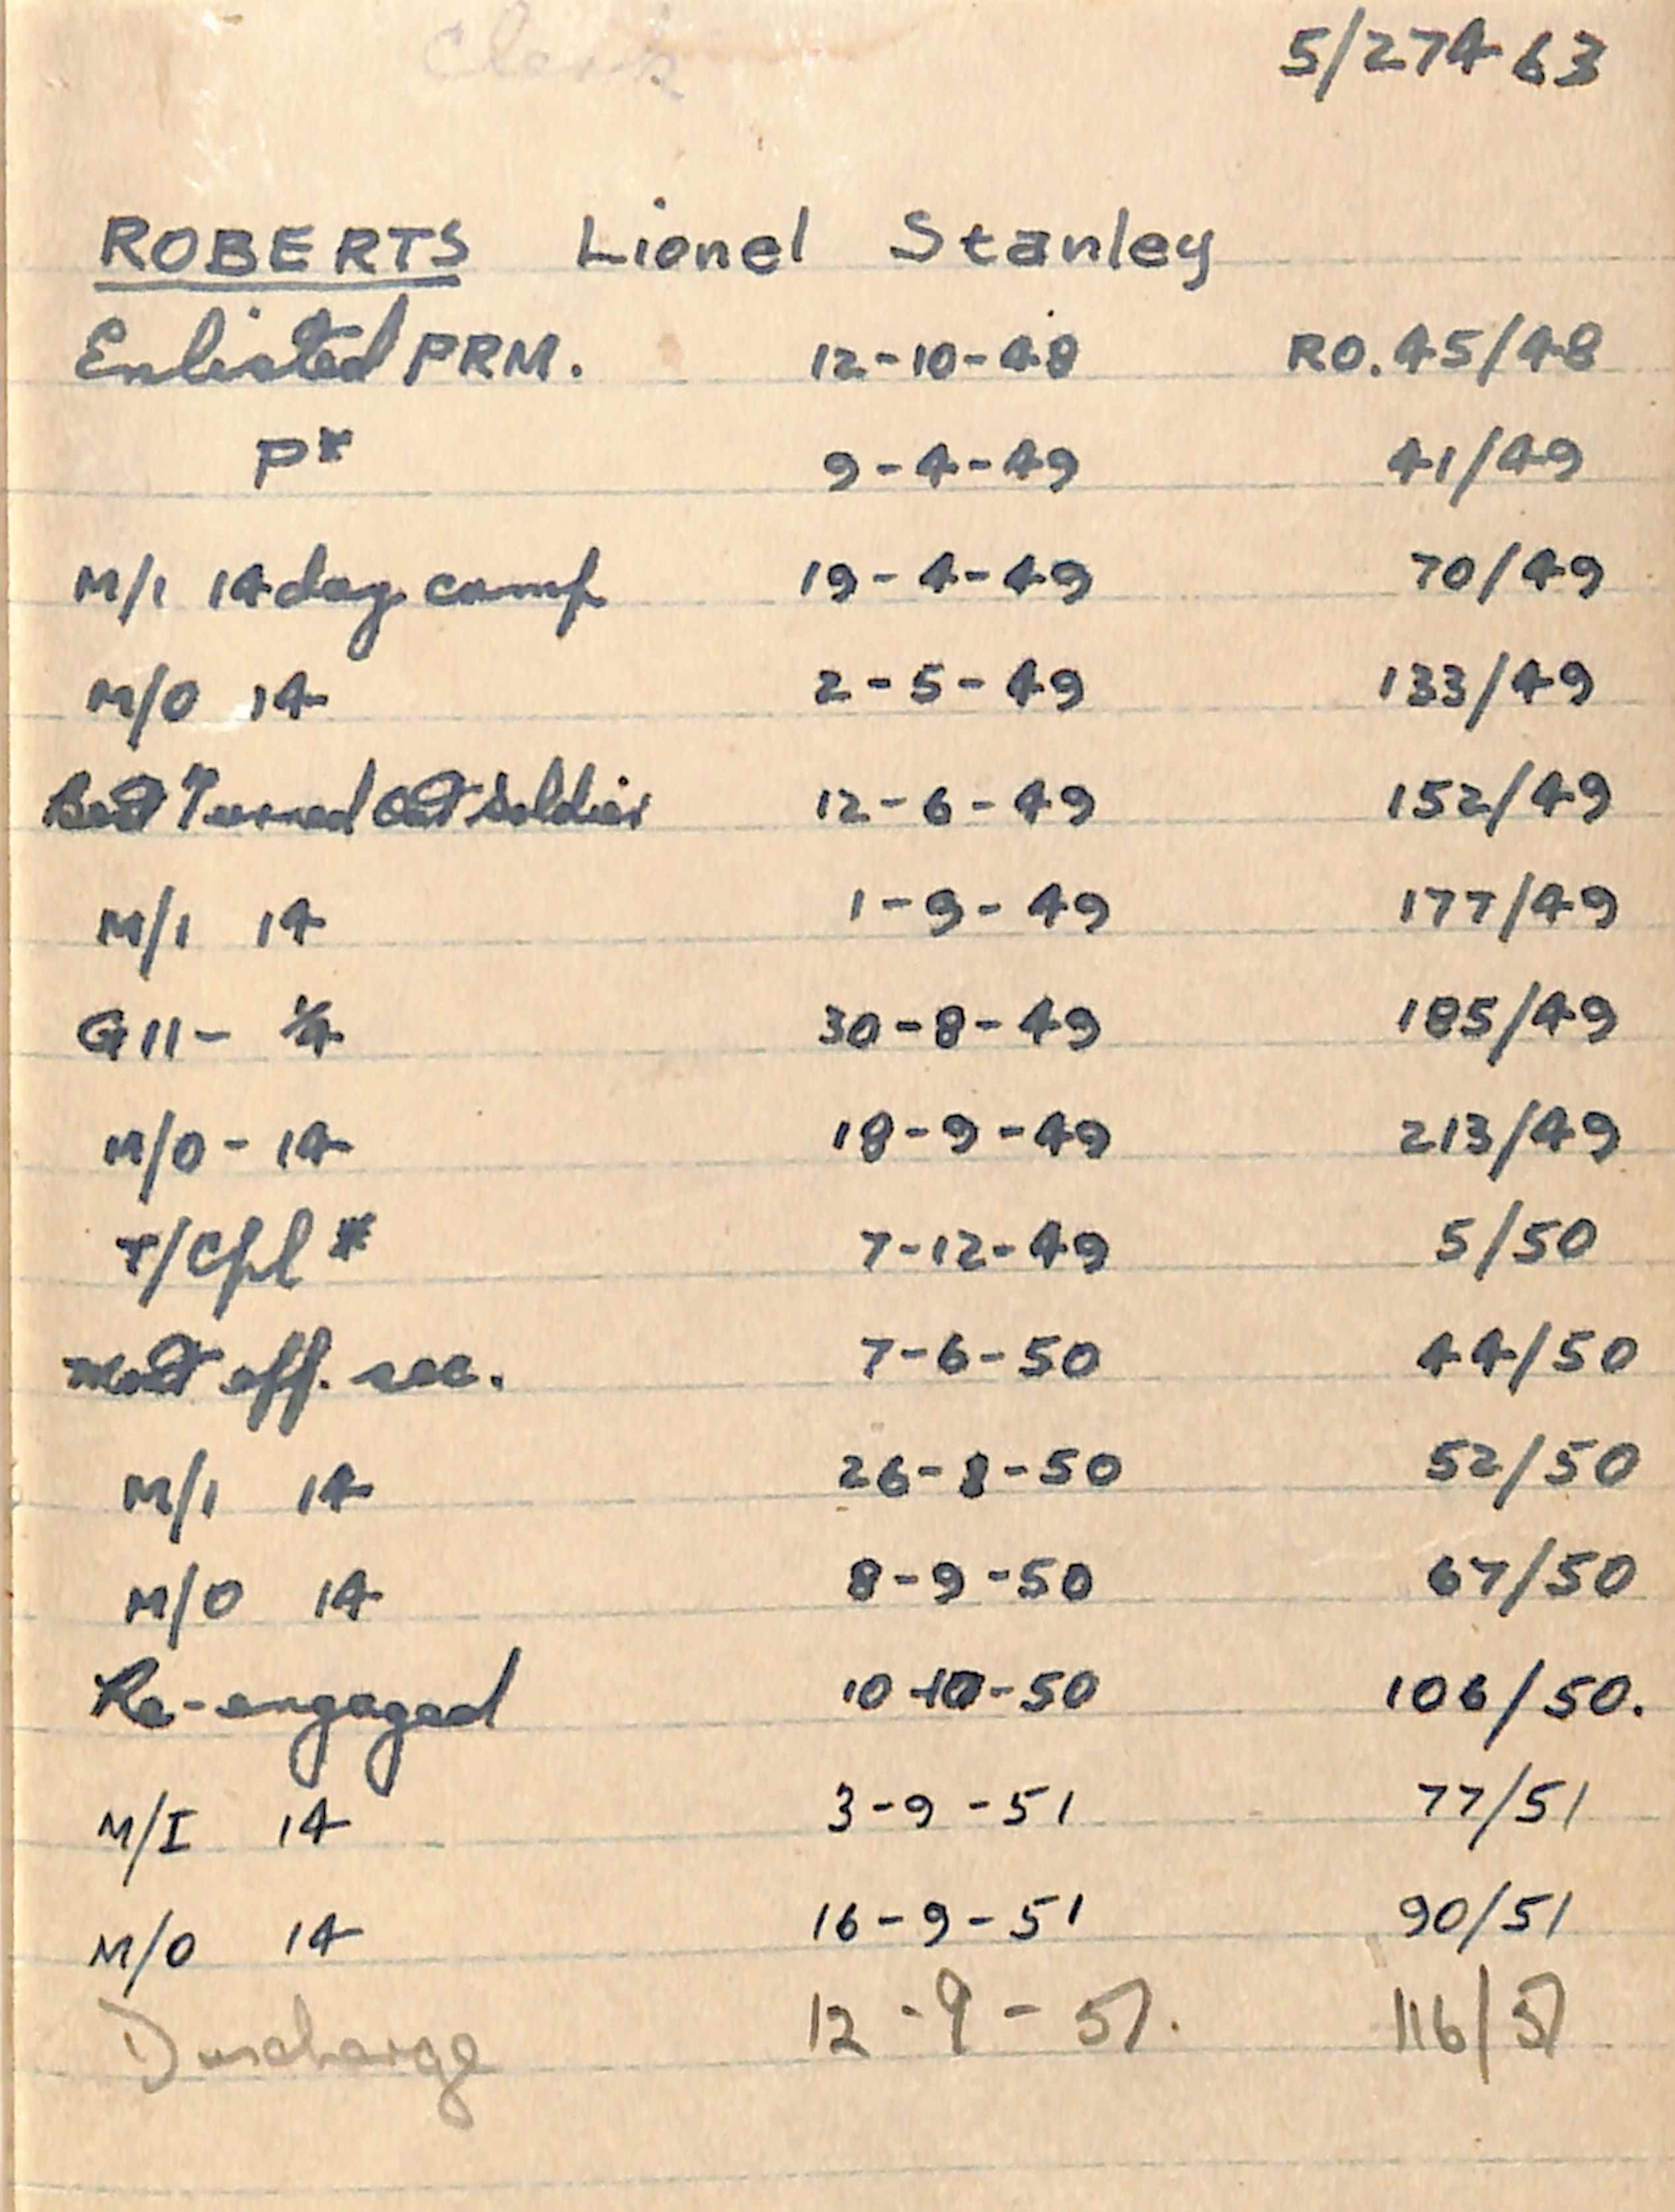 Clerk
5/27463
ROBERTS Lionel Stanley
Enlisted PRM. 12-10-48 RO. 45/48
P* 9-4-49 41/49
M/1 14 day camp 19-4-49 70/49
M/O 14 2-5-49 133/49
Best Turned Out Soldier 12-6-49 152/49
M/1 14 1-9-49 177/49
G11- 1/4 30-8-49 185/49
M/O - 14 18-9-49 213/49
T/Cpl * 7-12-49 5/50
Most eff. sec. 7-6-50 44/50
M/1 14 26-8-50 52/50
M/O 14 8-9-50 67/50
Re-engaged 10-10-50 106/50.
M/I 14 3-9-51 77/51
M/O 14 16-9-51 90/51
Discharge 12-9-51. 116/51